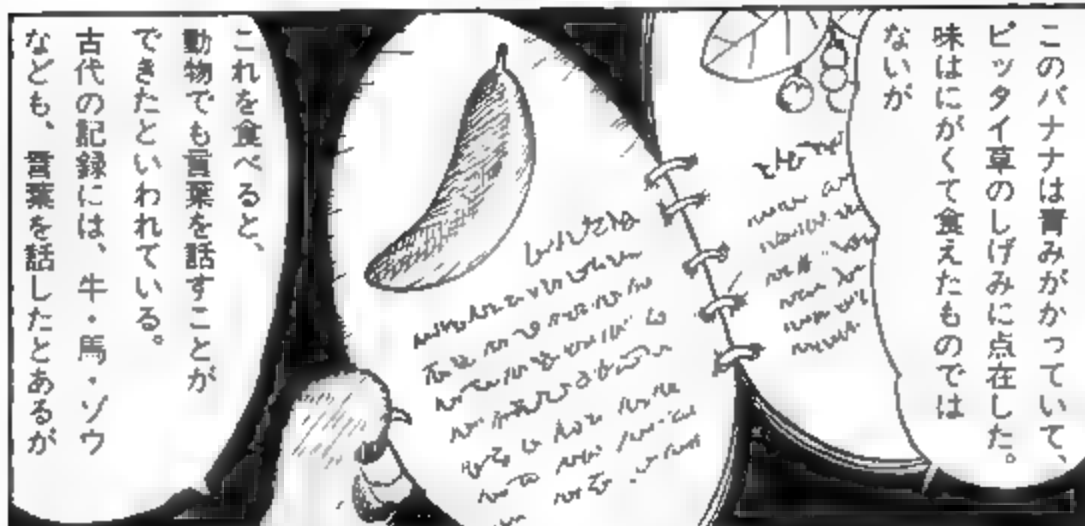 このバナナは青みがかっていて、
ピッタイ草のしげみに点在した。
味はにがくて食えたものでは
ないが
これを食べると、
動物でも言葉を話すことが
できたといわれている。
古代の記録には、牛・馬・ゾウ
なども、言葉を話したとあるが